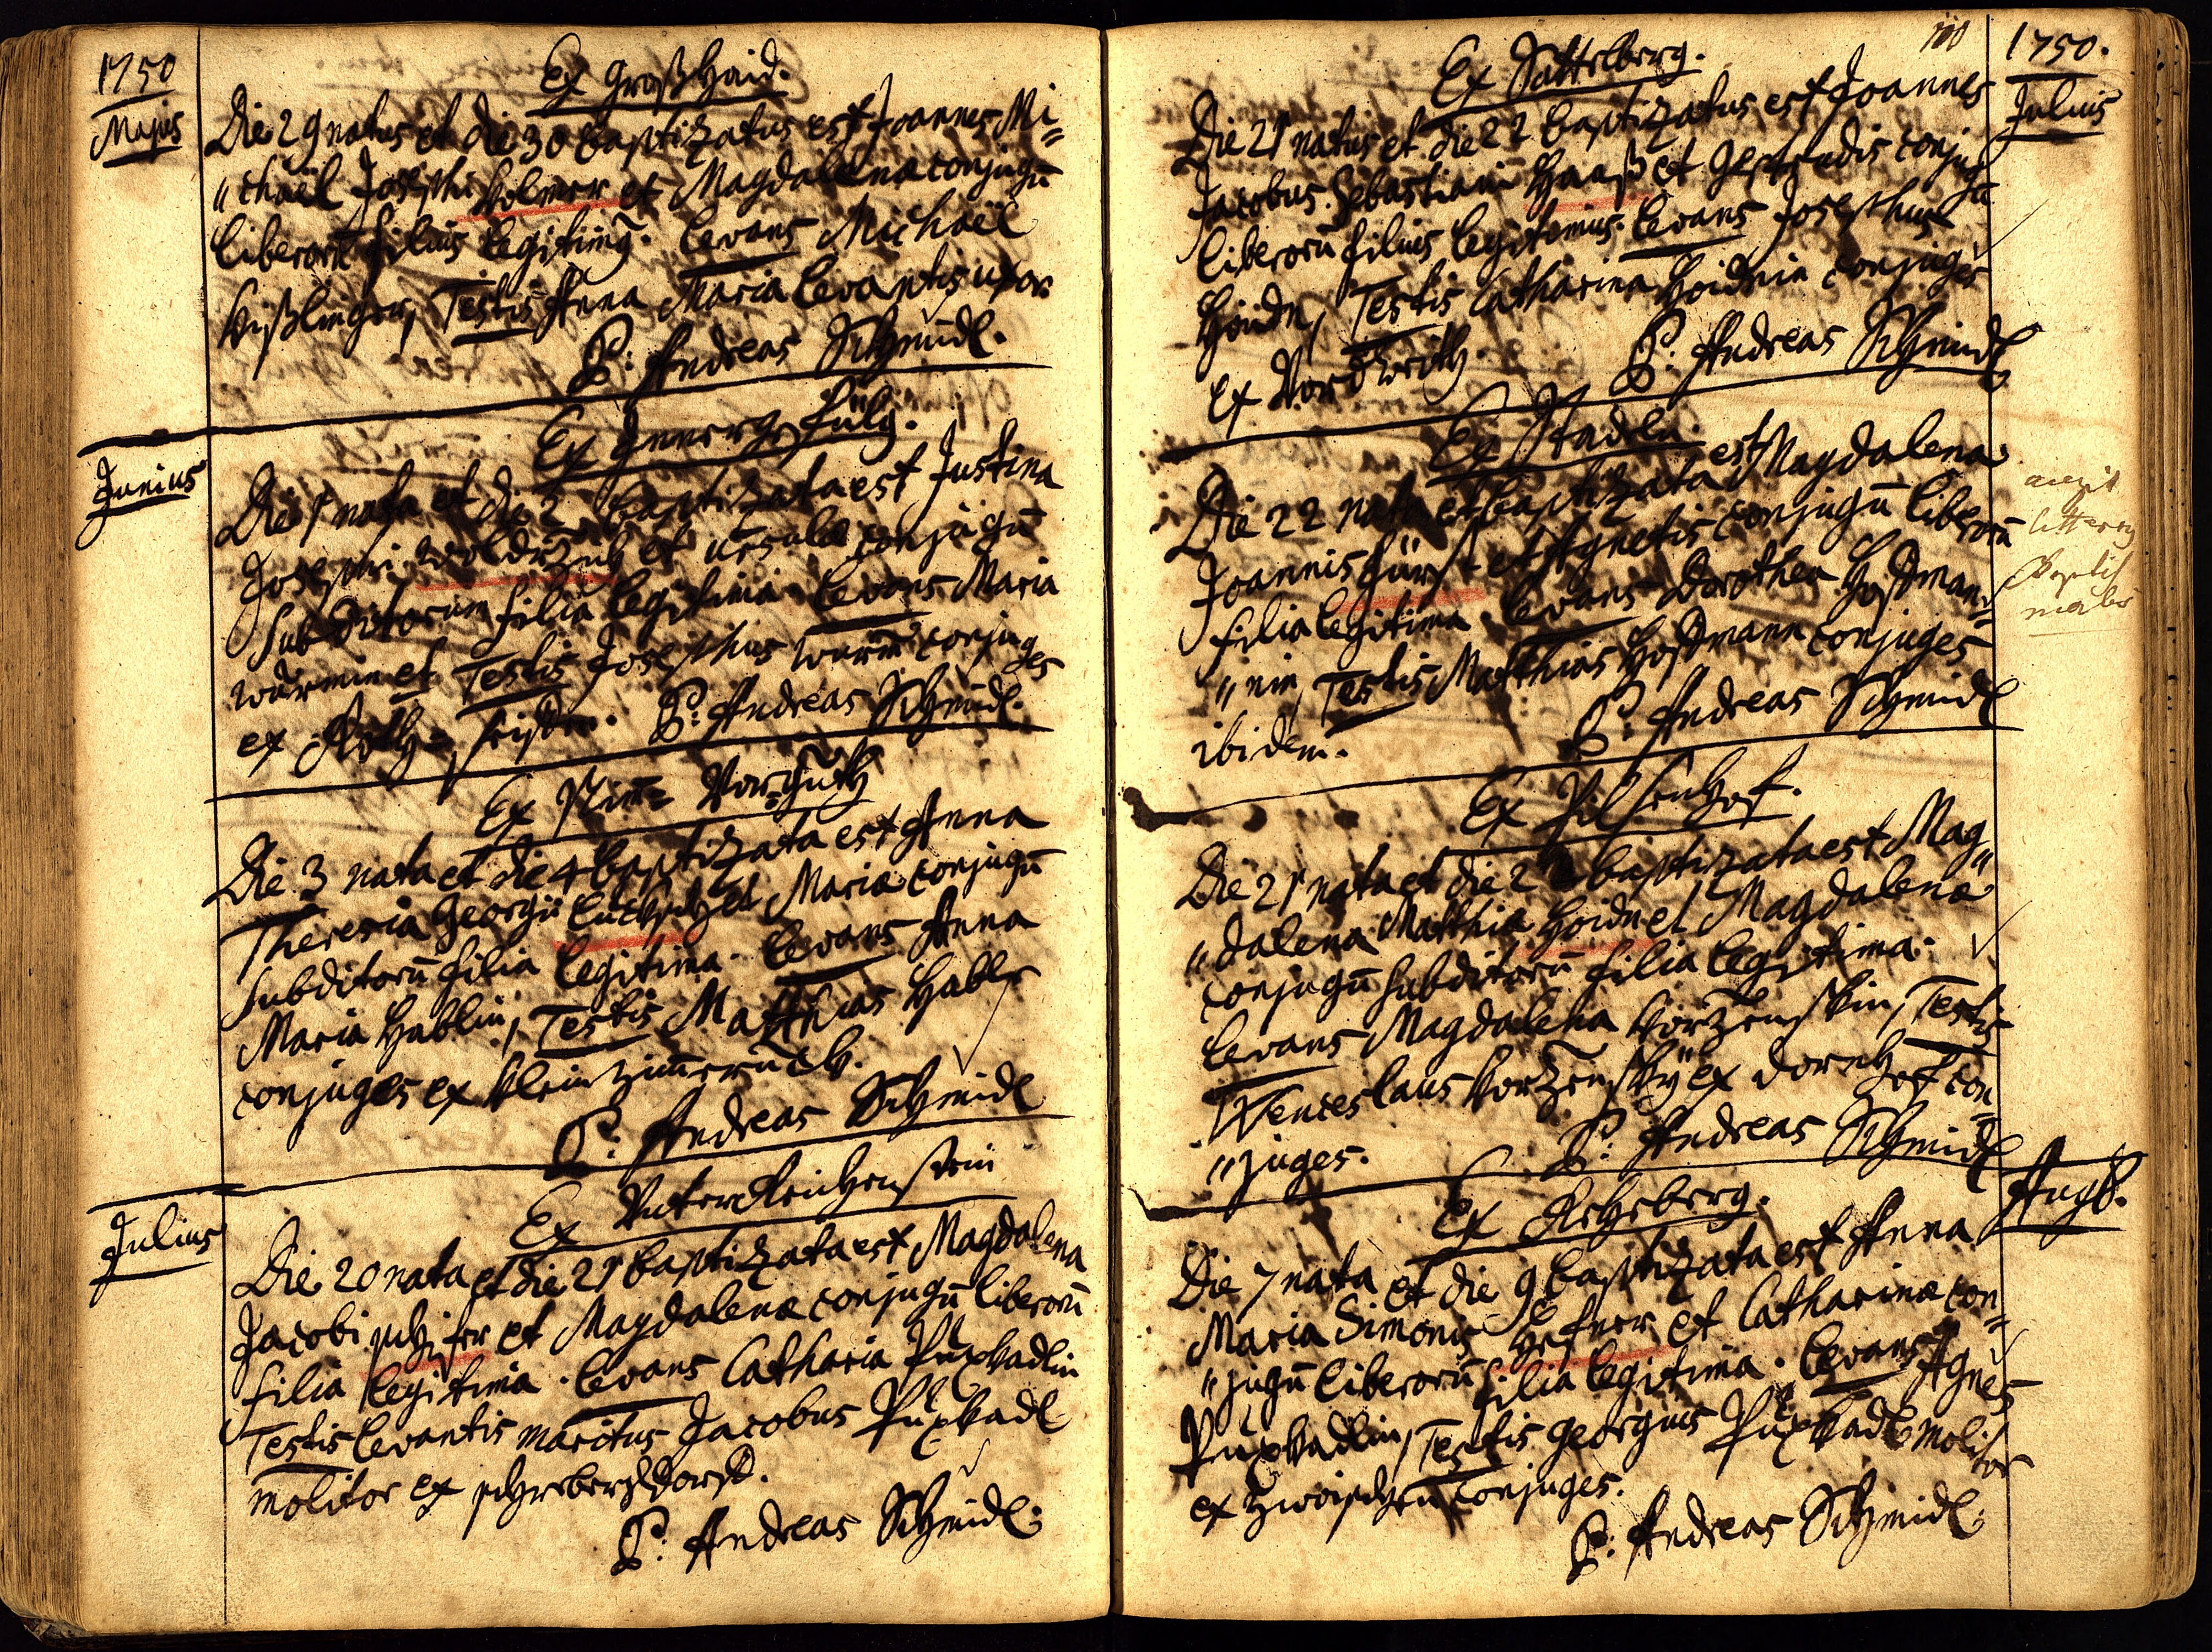 1750
Majus
Ex Großhaid.
Die 29 natus et die 30 baptizatus est Joannes Mi=
"chaël Josephi Holmer et Magdalena conjugū
liberorū filius legitimg. Levans Michaël
Kißlinger, Testis Anna Maria levantis uxor
P: Andreas Schmidl.
Junius
Ex
Die 1 nata et die 2 baptizata est Justina
Josephi et Ursula conjugū
subditorum filia legitima. Levans Maria
Würmin et Testis Josephus Wurm conjuges
ex P: Andreas Schmidl.
Ex
Die 3 nata et die 4 baptizata est Anna
Theresia Georgii et Maria conjugū
subditorū filia legitima. Levans Anna
Maria Hablin, Testis Matthias Habl
conjuges ex Klein
P: Andreas Schmidl
Julius
Ex Unterreichenstein
Die 20 nata et die 21 baptizata est Magdalena
Jacobi et Magdalena conjugū liberorū
filia legitima. Levans Catharia Puxkadlin
Testis levantis maritus Jacobus Puxkadl
molitor ex
P: Andreas Schmidl:
100
1750.
Julius
Ex Sattelberg.
Die 21 natus et die 22 baptizatus est Joannes
Jacobus. Sebastiani Haas et Gertrudis conjugū
liberorū filius legitimus. Levans Josephus
Hoidn, Testis Catharina Hoidnin conjuges
ex
P: Andreas Schmidl
Ex Stadln.
Die 22 nata et baptizata est Magdalena
Joannis Fürst et Agnetis conjugū liberorū
filia legitima. Levans Dorothea Hoffman=
"nin, Testis Matthias Hoffmann conjuges
ibidem.
P: Andreas Schmidl
Ex Pilsenhof.
Die 21 nata et die 22 baptizata est Mag"
"dalena Matthia Hoidn et Magdalena
conjugū subditorū filia legitima.
Levans Magdalena Korzenskin, Testis
Wenceslaus Korzensky ex Dornhof con=
"juges.
P: Andreas Schmidl
Aug.
Ex Rehberg.
Die 7 nata et die 9 baptizata est Anna
Maria Simonis Hefner et Catharina con=
"jugū liberorū filia legitima. Levans Agnes
Puxkadlin, Testis Georgius Puxkadl molitor
ex conjuges.
P: Andreas Schmidl.